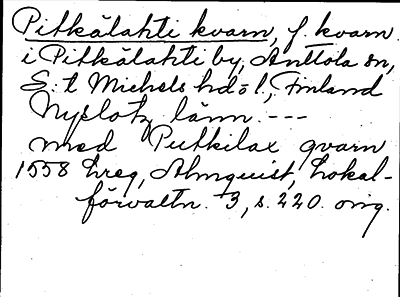 Pitkälahti kvarn, f. kvarn
i Pitkälahti by, Anttola sn,
S:t Michels hd o l, Finland
Nyslotz länn. ---
med Putkilax qvarn
1558 hreg, Almquist, Lokal-
förvaltn. 3, s. 220. orig.